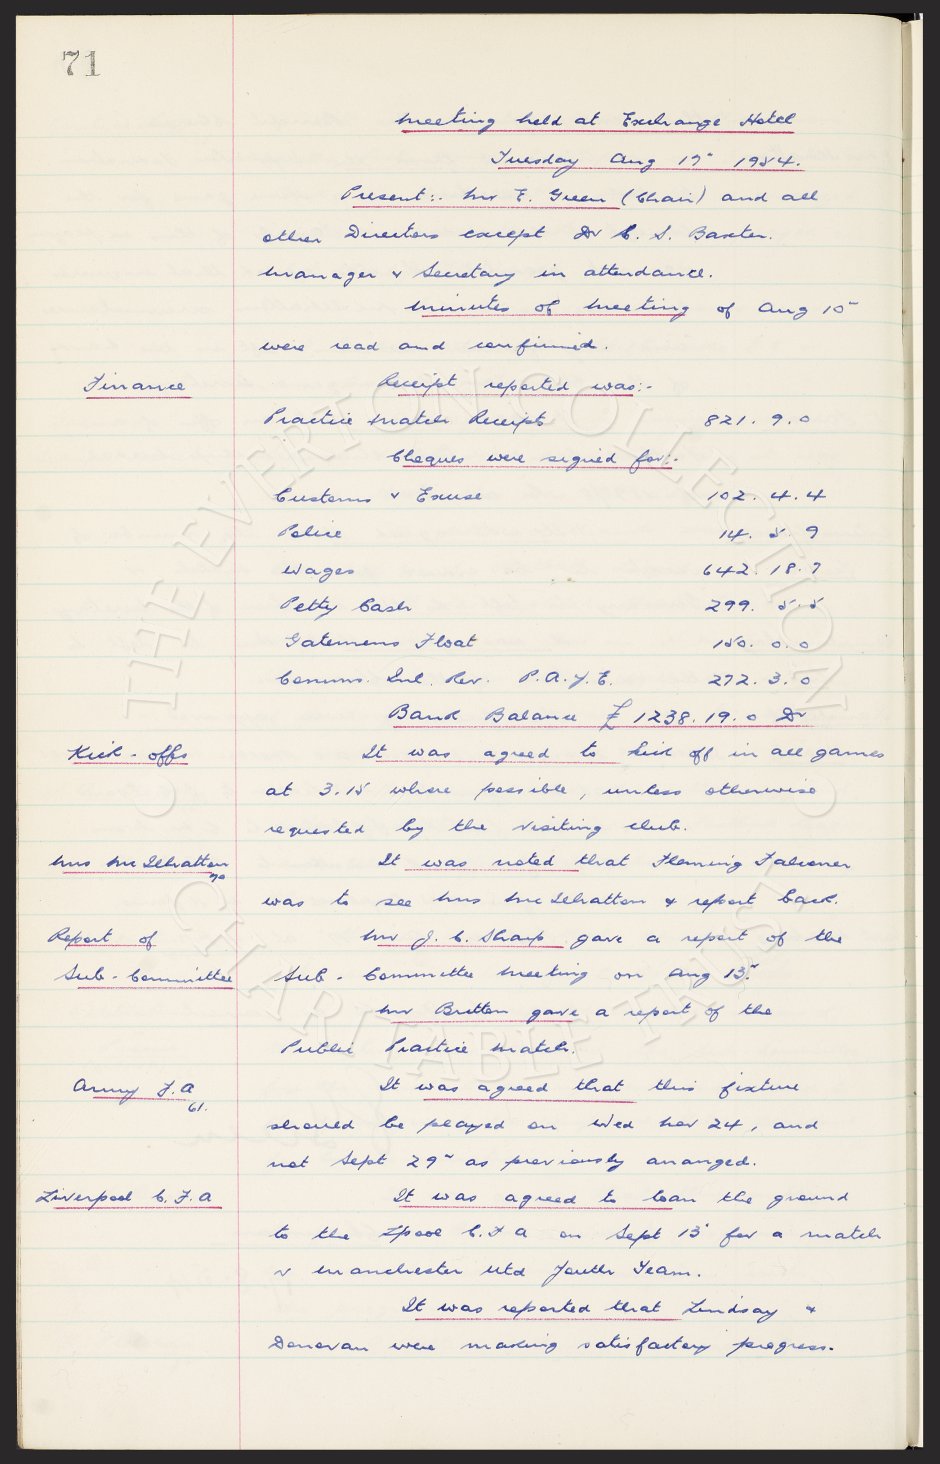 71
Meeting held at Exchange Hotel
Tuesday Aug 17" 1954.
Present:- Mr E. Green (Chair) and all
other Directors except Dr C. S. Baxter.
Manager & Secretary in attendance.
Minutes of meeting of Aug 10"
were read and confirmed.
Finance
Receipt reported was:-
Practice Match Receipts 821. 9. 0
Cheques were signed for:-
Customs & Excise 102. 4. 4
Police 14. 5. 9
Wages 642. 18. 7
Petty Cash 299. 5. 5
Gatemens Float 150. 0. 0
Comms. Inl. Rev. P.A.Y.E. 272. 3. 0
Bank Balance £1238. 19. 0 Dr
Kick-offs
It was agreed to kick off in all games
at 3.15 where possible, unless otherwise
requested by the visiting club.
Mrs McIlhatton
70
It was noted that Fleming Falconer
was to see Mrs McIlhatton & report back.
Report of
Sub-Committee
Mr J. C. Sharp gave a report of the
Sub-Committee Meeting on Aug 13"
Mr Britton gave a report of the
Public Practice Match.
Army F.A
61.
It was agreed that this fixture
should be played on Wed Nov 24, and
not Sept 29" as previously arranged.
Liverpool C.F.A
It was agreed to loan the ground
to the Lpool C.F A on Sept 13" for a match
v Manchester Utd Youth Team.
It was reported that Lindsay &
Donovan were making satisfactory progress.
THE EVERTON COLLECTION
CHARITABLE TRUST